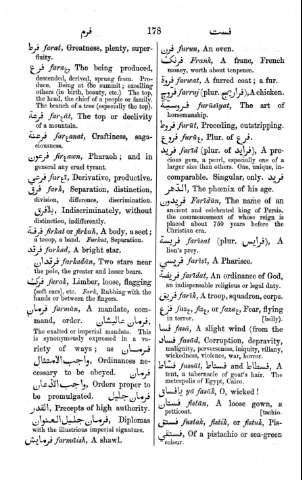 فرم 178 فست
فرط farat, Greatness, plenty, superfluity.
فرع farạ, The being produced,
descended, derived, sprung from. Produce. Being at the summit; excelling
others (in birth, beauty, etc.) The top,
the head, the chief of a people or family.
The branch of a tree (especially the top).
The top or declivity
of a mountain.
Craftiness, sagaciousness.
فرعون Pharaoh; and in
general any cruel tyrant.
Derivative, productive.
فرق fark, Separation, distinction,
division, difference, discrimination.
بلافرق Indiscriminately, without
distinction, indifferently.
فرقة firkat or firkah, A body, a sect;
a troop, a band. Furkat, Separation.
فرقد farkad, A bright star.
فرقدان farkadān, Two stars near
the pole, the greater and lesser bears.
فرك farak, Limber, loose, flagging
(soft ears), etc. Fark, Rubbing with the
hands or between the fingers.
فرمان farmān, A mandate, command, order.
فرمان عاليشان
The exalted or imperial mandate. This
is synonymously expressed in a variety of ways; as
فرمان واجب الامتثال Ordinances necessary to be obeyed.
فرمان واجب الاذعان Orders proper to
be promulgated.
فرمان جليل القدر Precepts of high authority.
فرمان جليل العنوان Diplomas
with the illustrious imperial signature.
فرمايش farmāish, A shawl.
فرن furun, An oven.
فرنك Frank, A franc, French
money, worth about tenpence.
فروة farwat, A furred coat; a fur.
فروج farrūj (plur. فراريج), A chicken.
فروسية farūsīyat, The art of
horsemanship.
فروط furūt, Preceding, outstripping.
فروع furūạ, Plur. of فرع.
فريد farīd (plur. of فرايد), A precious gem, a pearl, especially one of a
larger size than others. One, unique, incomparable. Singular, only. فريد
الدهر The phœnix of his age.
فريدون Farīdūn, The name of an
ancient and celebrated king of Persia,
the commencement of whose reign is
placed about 750 years before the
Christian era.
فريسة farīsat (plur. فرايس), A
lion's prey.
فريسي farīsī, A Pharisee.
فريضة farīdat, An ordinance of God,
an indispensable religious or legal duty.
فريق farīk, A troop, squadron, corps.
فزع fazạ, or Fear, flying
in terror. [belly).
فسا fasā, A slight wind (from the
فساد fasād, Corruption, depravity,
malignity, perverseness, iniquity, villany,
wickedness, violence, war, horror.
فسطاط fustāt, A
tent, a tabernacle of goat's hair. The
metropolis of Egypt, Cairo.
يافساق yā fasāk, O, wicked!
فستان fistān, A loose gown, a
petticoat. [tachio.
فستق fustak, fistik, or fistuk, Pis-
فستقي Of a pistachio or sea-green
colour.